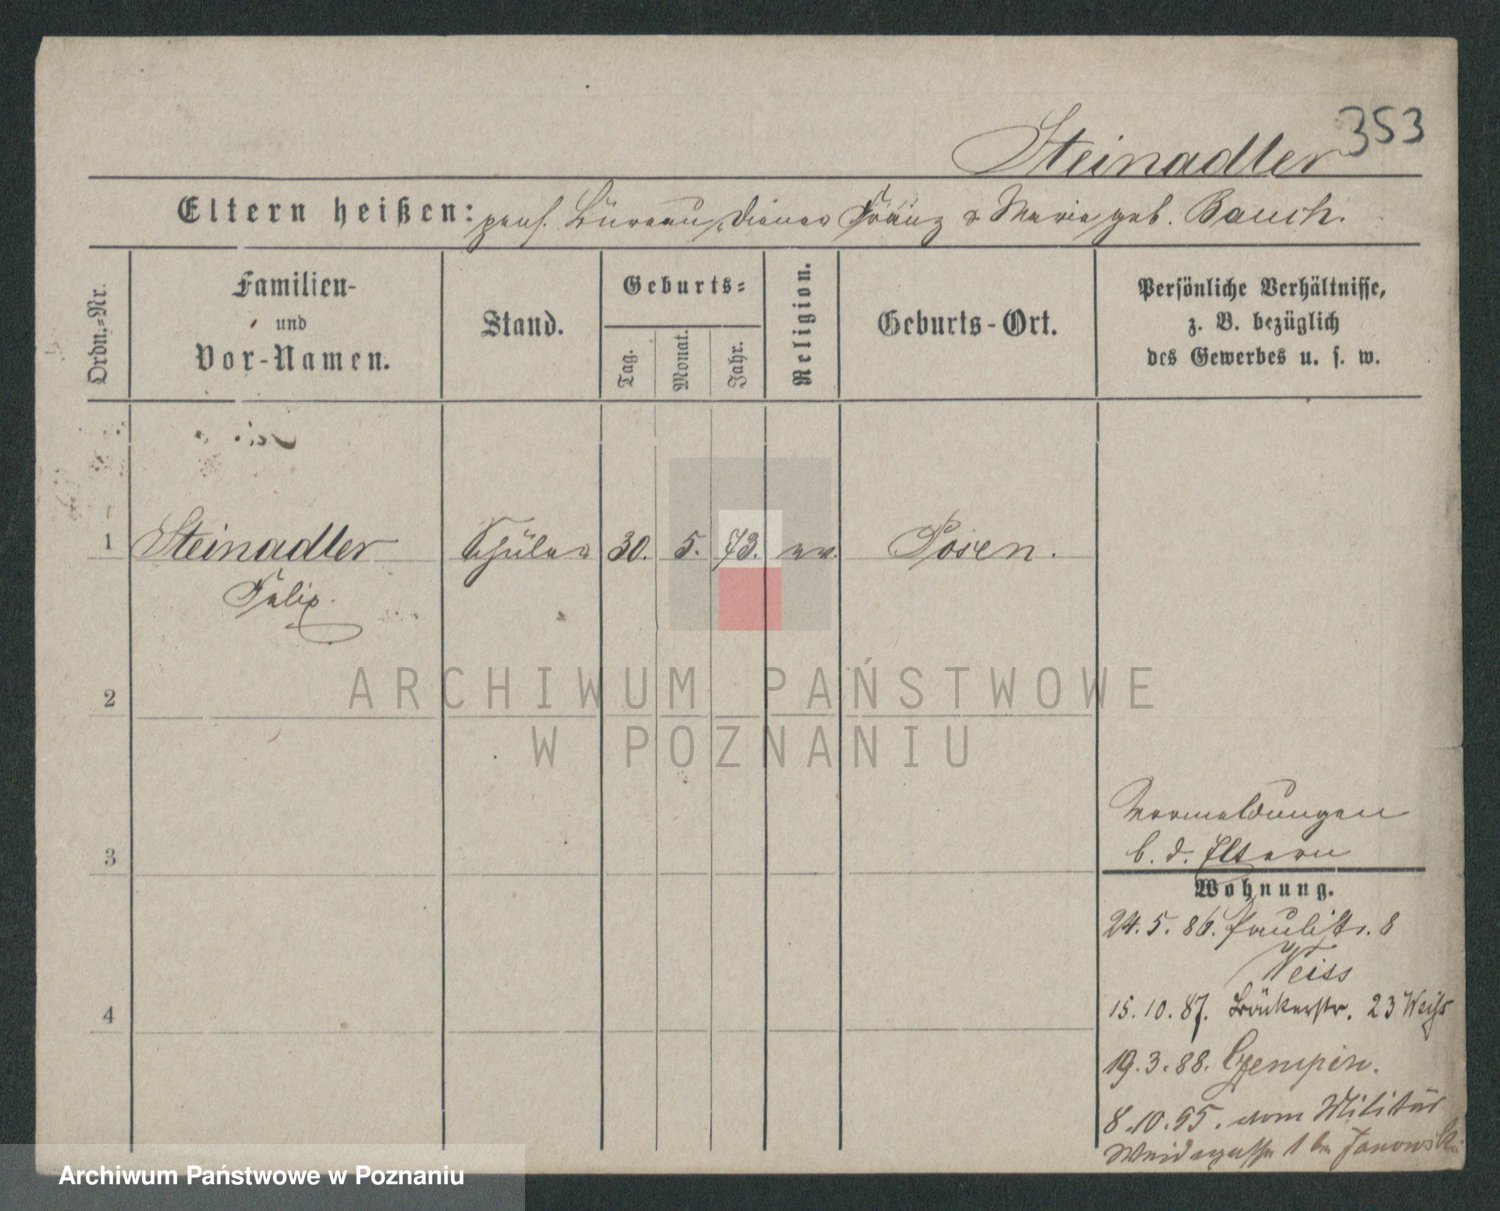 353
Steinadler
Eltern heißen: pens. Büreau, Diener Franz & Marie geb. Bauch.
Ordn.-Nr.
Familien-
und
Vor-Namen.
Stand.
Geburts-
Tag.
Monat.
Jahr.
Religion.
Geburts-Ort.
Persönliche Verhältnisse,
z. B. bezüglich
des Gewerbes u. s. w.
1 Steinadler Schüler 30. 5. 73. ev. Posen.
Felix.
ARCHIWUM PAŃSTWOWE
W POZNANIU
2
3
4
Vermeldungen
b. d. Eltern
Wohnung.
24. 5. 86. Paulistr. 8
Weiss
15. 10. 87. Bäckerstr. 23 Weiss
19. 3. 88. Czempin.
8. 10. 95. vom Militär
1 bei Janowski
Archiwum Państwowe w Poznaniu